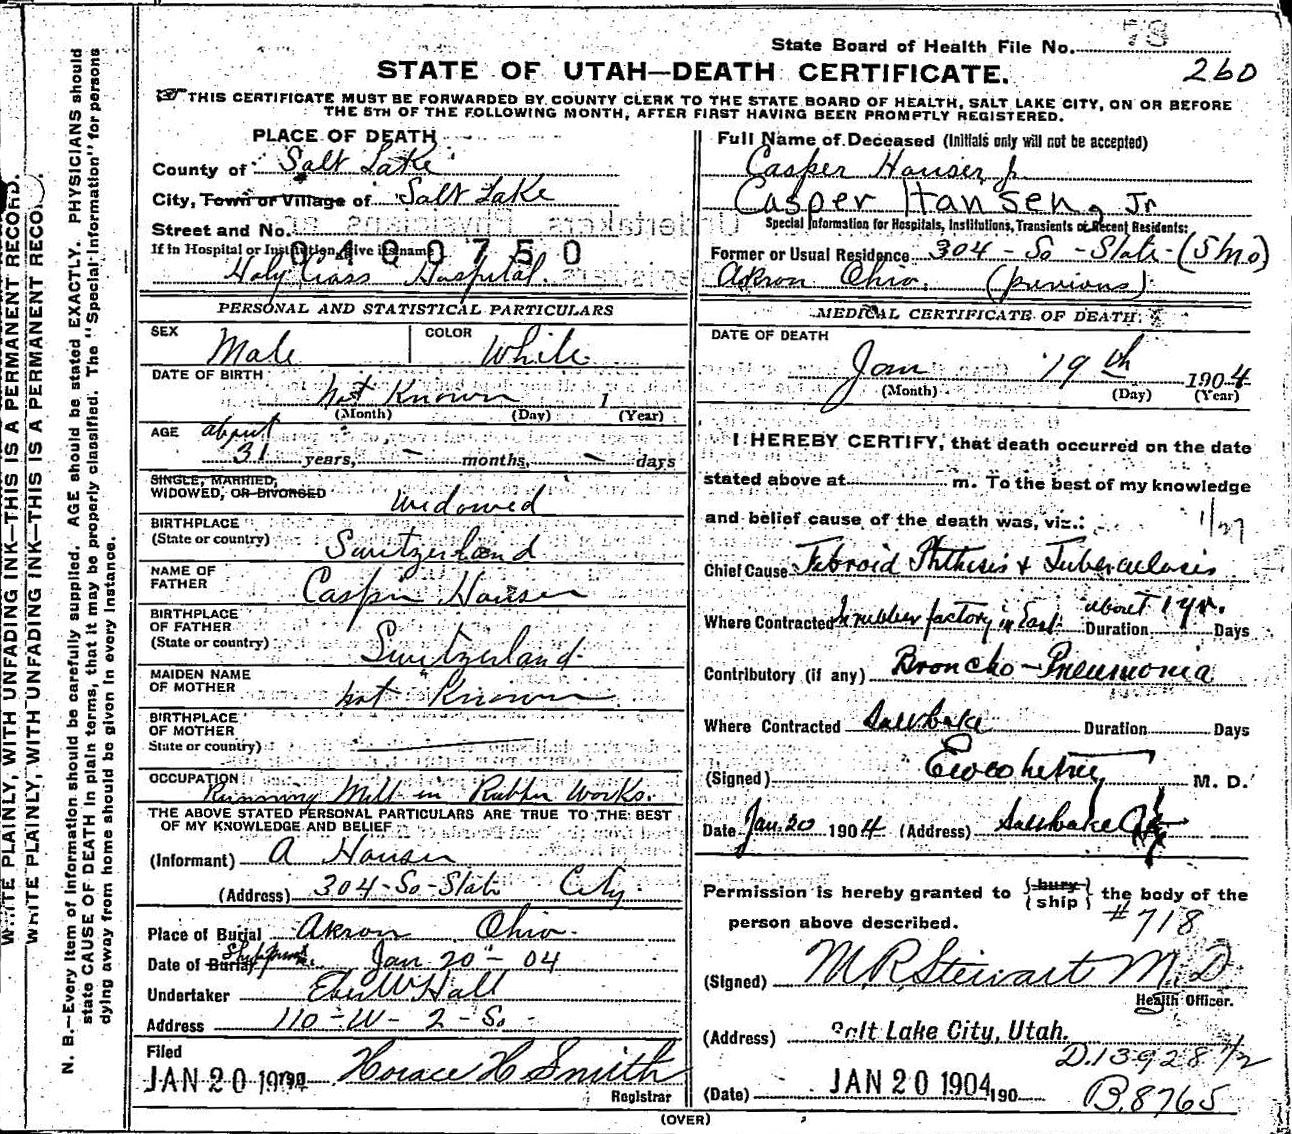 State Board of Health File No. 78
260
STATE OF UTAH—DEATH CERTIFICATE.
THIS CERTIFICATE MUST BE FORWARDED BY COUNTY CLERK TO THE STATE BOARD OF HEALTH, SALT LAKE CITY, ON OR BEFORE
THE 5TH OF THE FOLLOWING MONTH, AFTER FIRST HAVING BEEN PROMPTLY REGISTERED.
PLACE OF DEATH
County of Salt Lake
City, Town or Village of Salt Lake
Street and No.
If in Hospital or Institution, give its name
0400750
Holy Cross Hospital.
PERSONAL AND STATISTICAL PARTICULARS
SEX Male COLOR White
DATE OF BIRTH
Not Known 1
(Month) (Day) (Year)
AGE about
31 years, – months, – days
SINGLE, MARRIED,
WIDOWED, OR DIVORCED Widowed
BIRTHPLACE
(State or country) Switzerland
NAME OF
FATHER Casper Hauser
BIRTHPLACE
OF FATHER
(State or country) Switzerland
MAIDEN NAME
OF MOTHER not Known
BIRTHPLACE
OF MOTHER
State or country)
OCCUPATION
Running Mill in Rubber Works.
THE ABOVE STATED PERSONAL PARTICULARS ARE TRUE TO THE BEST
OF MY KNOWLEDGE AND BELIEF
(Informant) A Hauser
(Address) 304-So-State City
Place of Burial Akron Ohio.
Date of Burial Shipment. Jan 20 - 04
Undertaker Eber W Hall
Address 110-W-2-So
Filed
JAN 20 190 Horace H Smith
Registrar
Full Name of Deceased (Initials only will not be accepted)
Casper Hauser Jr
Casper Hansen, Jr
Special Information for Hospitals, Institutions, Transients or Recent Residents:
Former or Usual Residence 304-So-State-(5mo)
Akron Ohio. (previous)
MEDICAL CERTIFICATE OF DEATH.
DATE OF DEATH
Jan 19th 1904
(Month) (Day) (Year)
I HEREBY CERTIFY, that death occurred on the date
stated above at m. To the best of my knowledge
and belief cause of the death was, viz.:
1/27
Chief Cause Fibroid Phthisis & Tuberculosis
Where Contracted In rubber factory in East Duration about 1 yr. Days
Contributory (if any) Broncho-Pneumonia
Where Contracted Salt Lake Duration Days
(Signed) M. D.
Date Jan. 20 1904 (Address) Salt Lake City
Permission is hereby granted to bury ship the body of the
person above described. #718
(Signed) M R Stewart M.D
Health Officer.
(Address) Salt Lake City, Utah.
D.13928 1/2
(Date) JAN 20 1904 190
B.8765
(OVER)
WRITE PLAINLY, WITH UNFADING INK—THIS IS A PERMANENT RECORD.
WRITE PLAINLY, WITH UNFADING INK—THIS IS A PERMANENT RECORD.
N. B.—Every item of information should be carefully supplied. AGE should be stated EXACTLY. PHYSICIANS should
state CAUSE OF DEATH in plain terms, that it may be properly classified. The "Special Information" for persons
dying away from home should be given in every instance.